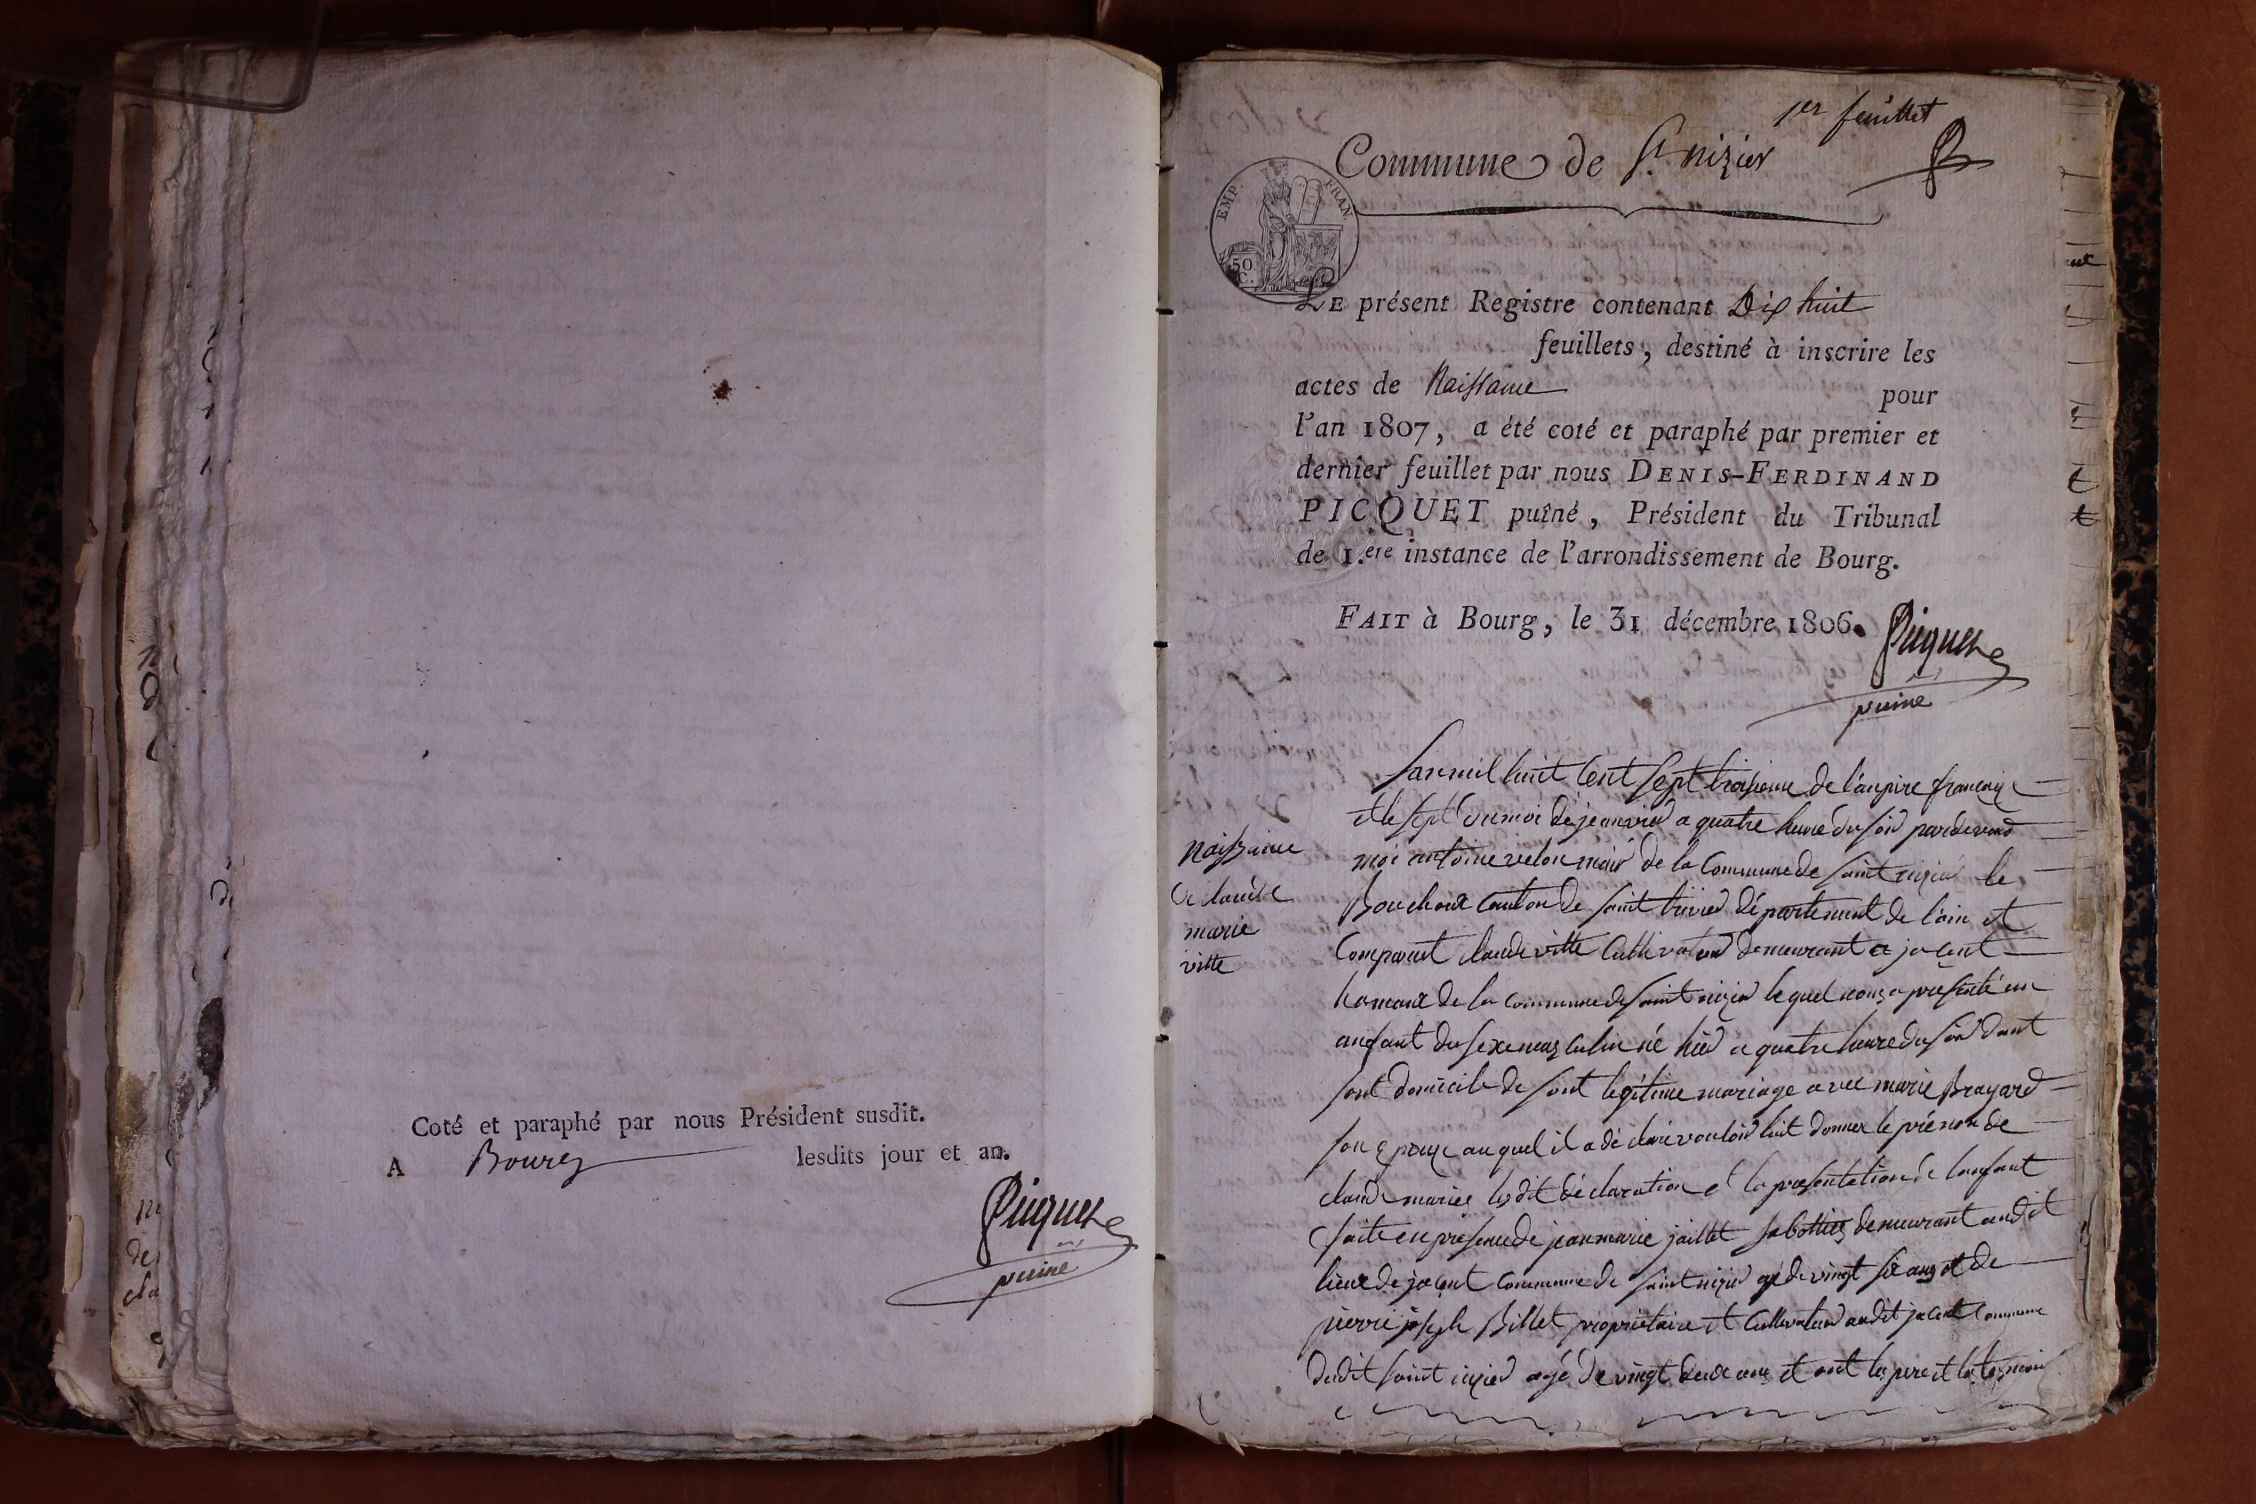 Coté et paraphé par nous Président susdit.
A Bourg lesdits jour et an.
Picquet
puiné
1er feuillet
Commune de St. nizier
EMP. FRAN.
50
C.
LE présent Registre contenant Dix huit
feuillets, destiné à inscrire les
actes de Naissance pour
l'an 1807, a été coté et paraphé par premier et
dernier feuillet par nous DENIS-FERDINAND
PICQUET puîné, Président du Tribunal
de 1.ere instance de l'arrondissement de Bourg.
FAIT à Bourg, le 31 décembre 1806.
Picquet
puiné
naissance
de claude
marie
vitte
Lan mil huit Cent sept troisieme de lanpire françaix
et le sept du moi de jeanvier a quatre heure du soir pardevand
moi antoine velon mair de la Commune de saint nizier le
Bouchoux Canton de saint trivier département de l'ain et
Comparut claude vitte Cultivateur demeurant a jacent
hamaux de la commune de saint nizier lequel nous a presenté un
anfant du sexe masculin né hier a quatre heure du soir dant
sont domicile de sont legitime mariage avec marie Brayard
son epouse auquel il a déclaré vouloir luit donner le prénon de
claude marie lesdit déclaration et la presentation de lanfant
faite en presence de jean marie jaillet sabottier demeurant audit
lieux de jacent commune de saint nizier agé de vingt six ans et de
pierre joseph Billet propriétaire et Cultivateur audit jacent Commune
dudit saint nizier agé de vingt deux ans et ont les pere et les temoin